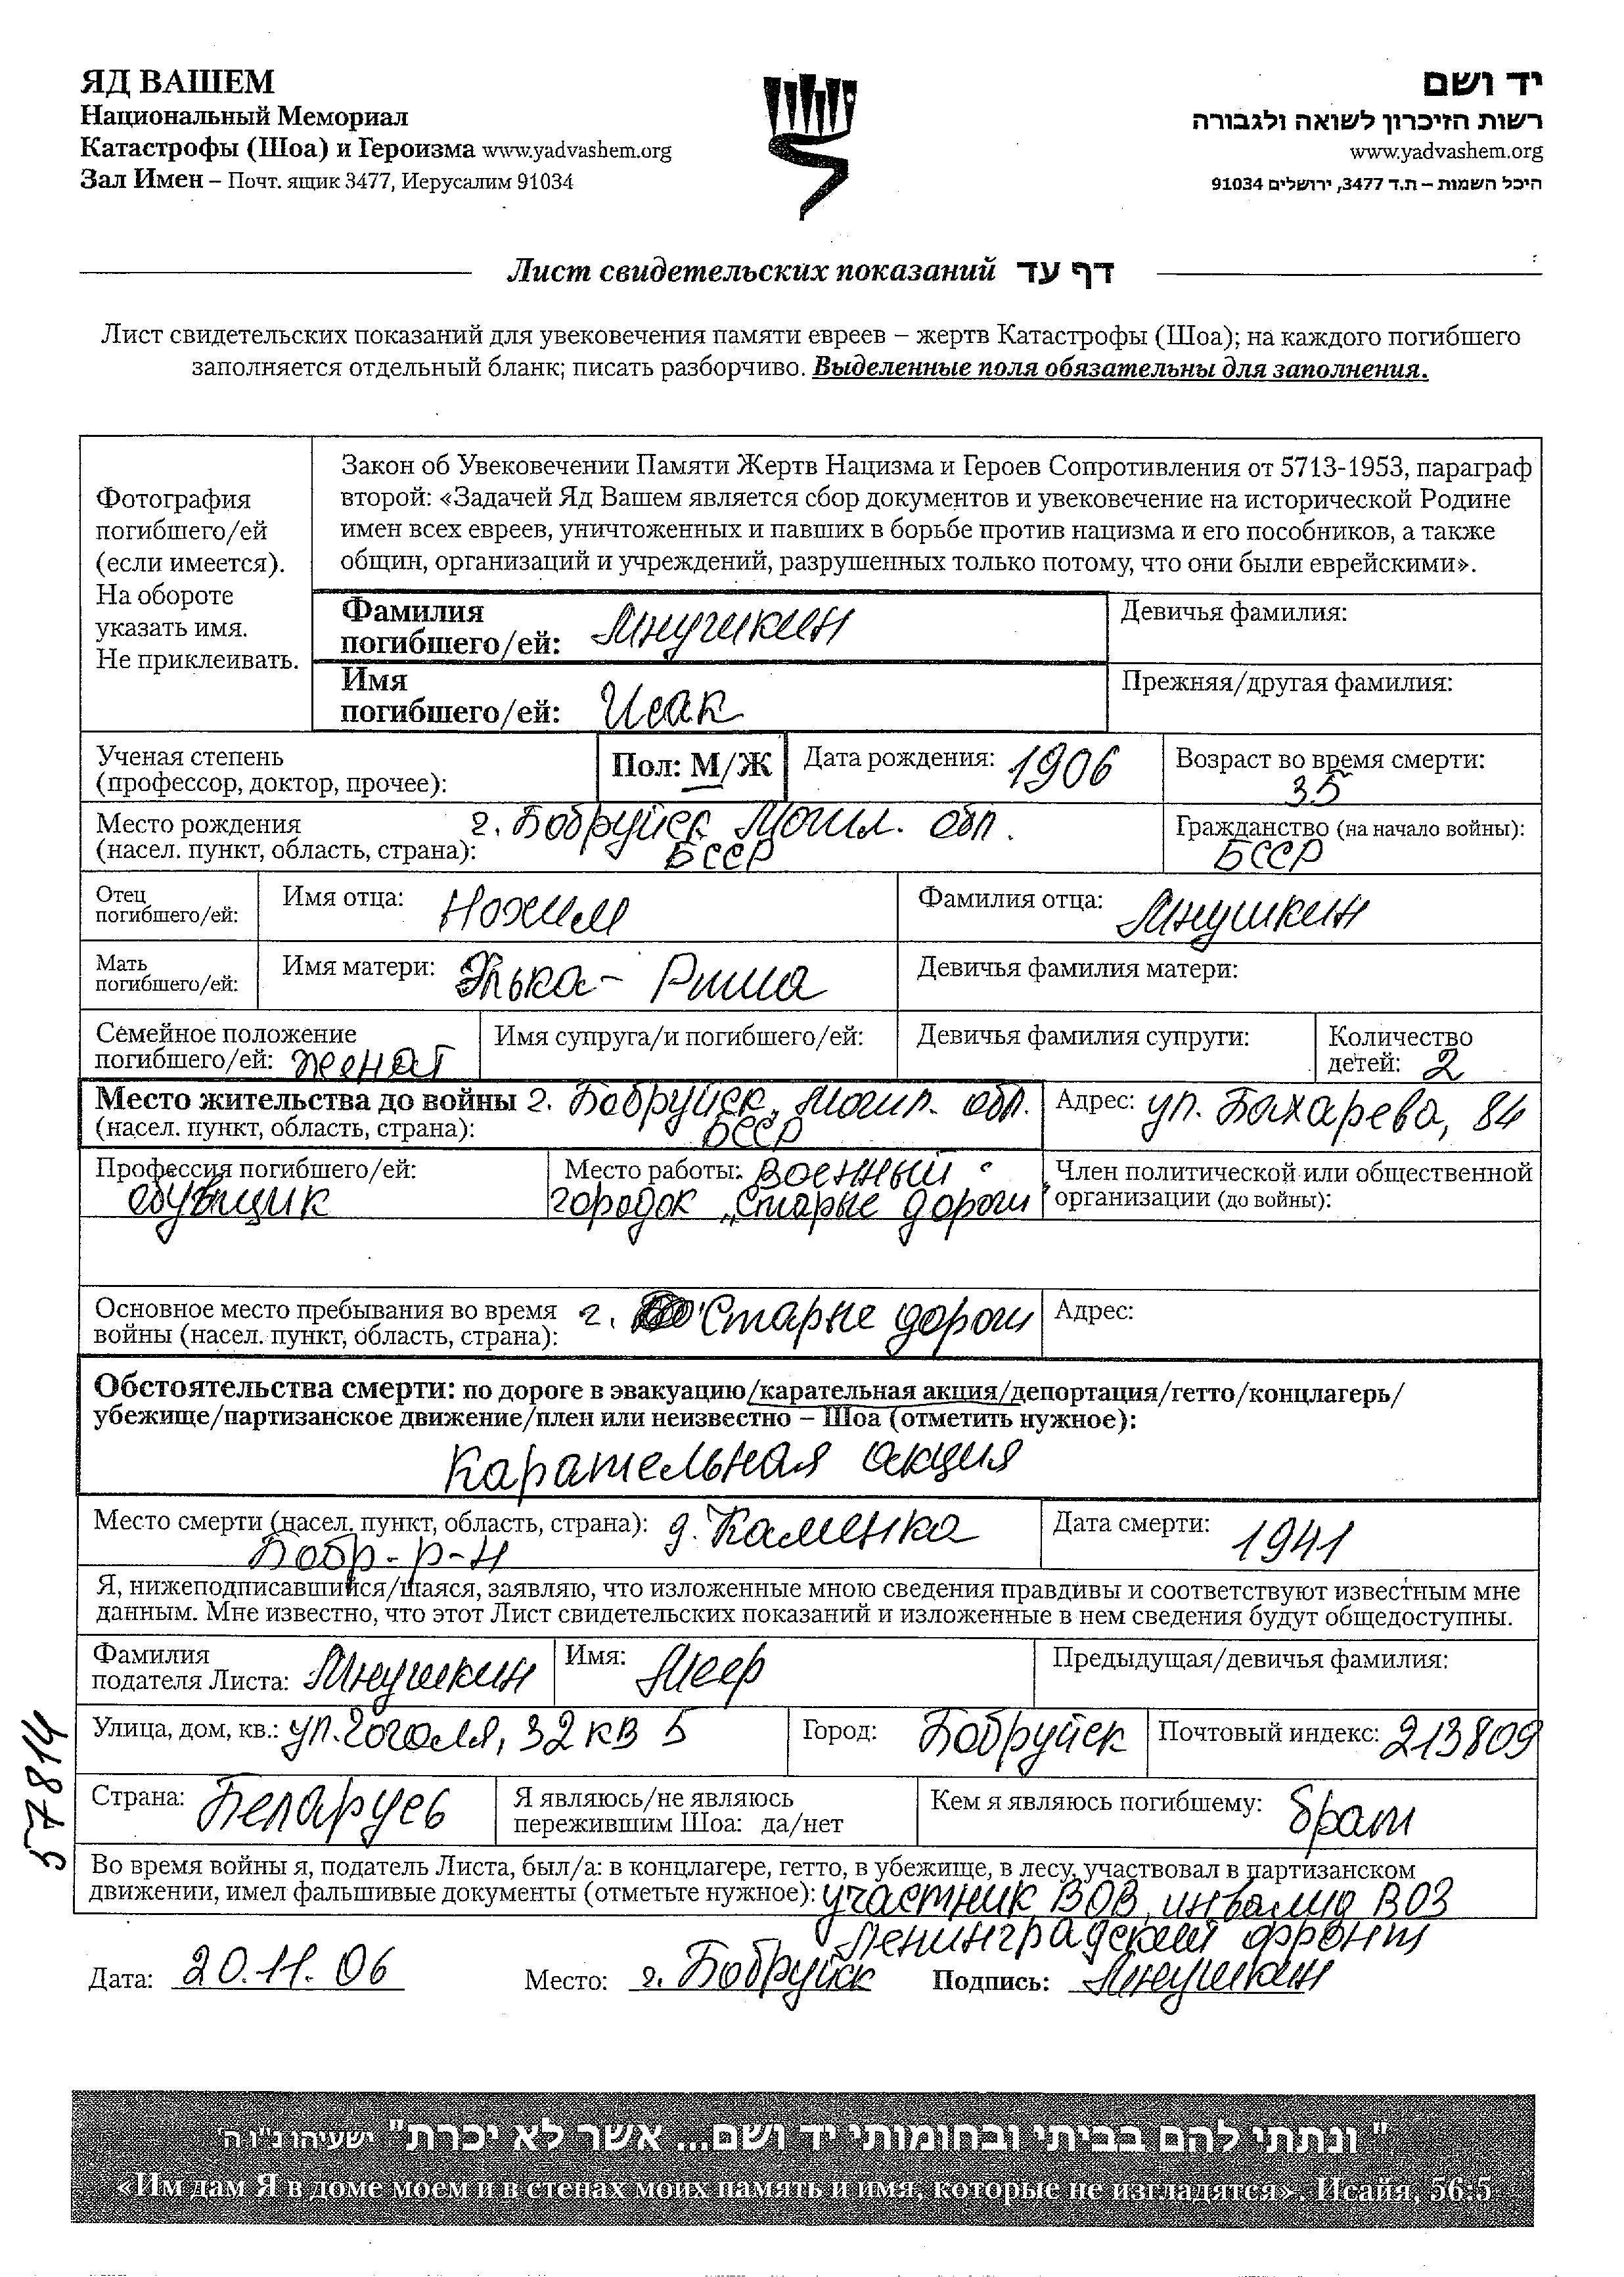 ЯД ВАШЕМ
Национальный Мемориал
Катастрофы (Шоа) и Героизма www.yadvashem.org
Зал Имен – Почт. ящик 3477, Иерусалим 91034
יד ושם
רשות הזיכרון לשואה ולגבורה
www.yadvashem.org
היכל השמות – ת.ד 3477, ירושלים 91034
Лист свидетельских показаний דף עד
Лист свидетельских показаний для увековечения памяти евреев – жертв Катастрофы (Шоа); на каждого погибшего
заполняется отдельный бланк; писать разборчиво. Выделенные поля обязательны для заполнения.
Фотография
погибшего/ей
(если имеется).
На обороте
указать имя.
Не приклеивать.
Закон об Увековечении Памяти Жертв Нацизма и Героев Сопротивления от 5713-1953, параграф
второй: «Задачей Яд Вашем является сбор документов и увековечение на исторической Родине
имен всех евреев, уничтоженных и павших в борьбе против нацизма и его пособников, а также
общин, организаций и учреждений, разрушенных только потому, что они были еврейскими».
Фамилия
погибшего/ей: Мнушкин
Девичья фамилия:
Имя
погибшего/ей: Исак
Прежняя/другая фамилия:
Ученая степень
(профессор, доктор, прочее):
Пол: М/Ж
Дата рождения: 1906
Возраст во время смерти:
35
Место рождения г. Бобруйск Могил. обл.
(насел. пункт, область, страна): БССР
Гражданство (на начало войны):
БССР
Отец
погибшего/ей:
Имя отца: Нохим
Фамилия отца: Мнушкин
Мать
погибшего/ей:
Имя матери: Элька- Риша
Девичья фамилия матери:
Семейное положение
погибшего/ей: женат
Имя супруга/и погибшего/ей:
Девичья фамилия супруги:
Количество
детей: 2
Место жительства до войны г. Бобруйск, Могил. обл.
(насел. пункт, область, страна): БССР
Адрес: ул. Бахарева, 84
Профессия погибшего/ей:
обувщик
Место работы: Военный
городок „Старые дороги"
Член политической или общественной
организации (до войны):
Основное место пребывания во время
войны (насел. пункт, область, страна): г. Старые дороги
Адрес:
Обстоятельства смерти: по дороге в эвакуацию/карательная акция/депортация/гетто/концлагерь/
убежище/партизанское движение/плен или неизвестно – Шоа (отметить нужное):
Карательная акция
Место смерти (насел. пункт, область, страна): д. Каменка
Бобр-р-н
Дата смерти: 1941
Я, нижеподписавшийся/шаяся, заявляю, что изложенные мною сведения правдивы и соответствуют известным мне
данным. Мне известно, что этот Лист свидетельских показаний и изложенные в нем сведения будут общедоступны.
Фамилия
подателя Листа: Мнушкин
Имя: Меер
Предыдущая/девичья фамилия:
Улица, дом, кв.: ул. Гоголя, 32 кв 5
Город: Бобруйск
Почтовый индекс: 213809
Страна: Беларусь
Я являюсь/не являюсь
пережившим Шоа: да/нет
Кем я являюсь погибшему: брат
Во время войны я, податель Листа, был/а: в концлагере, гетто, в убежище, в лесу, участвовал в партизанском
движении, имел фальшивые документы (отметьте нужное): участник ВОВ, инвалид ВОЗ
Ленинградский фронт
Дата: 20.11.06
Место: г. Бобруйск
Подпись: Мнушкин
57814
"ונתתי להם בביתי ובחומותי יד ושם... אשר לא יכרת" ישעיהו נ"ו ה'
«Им дам Я в доме моем и в стенах моих память и имя, которые не изгладятся». Исайя, 56:5